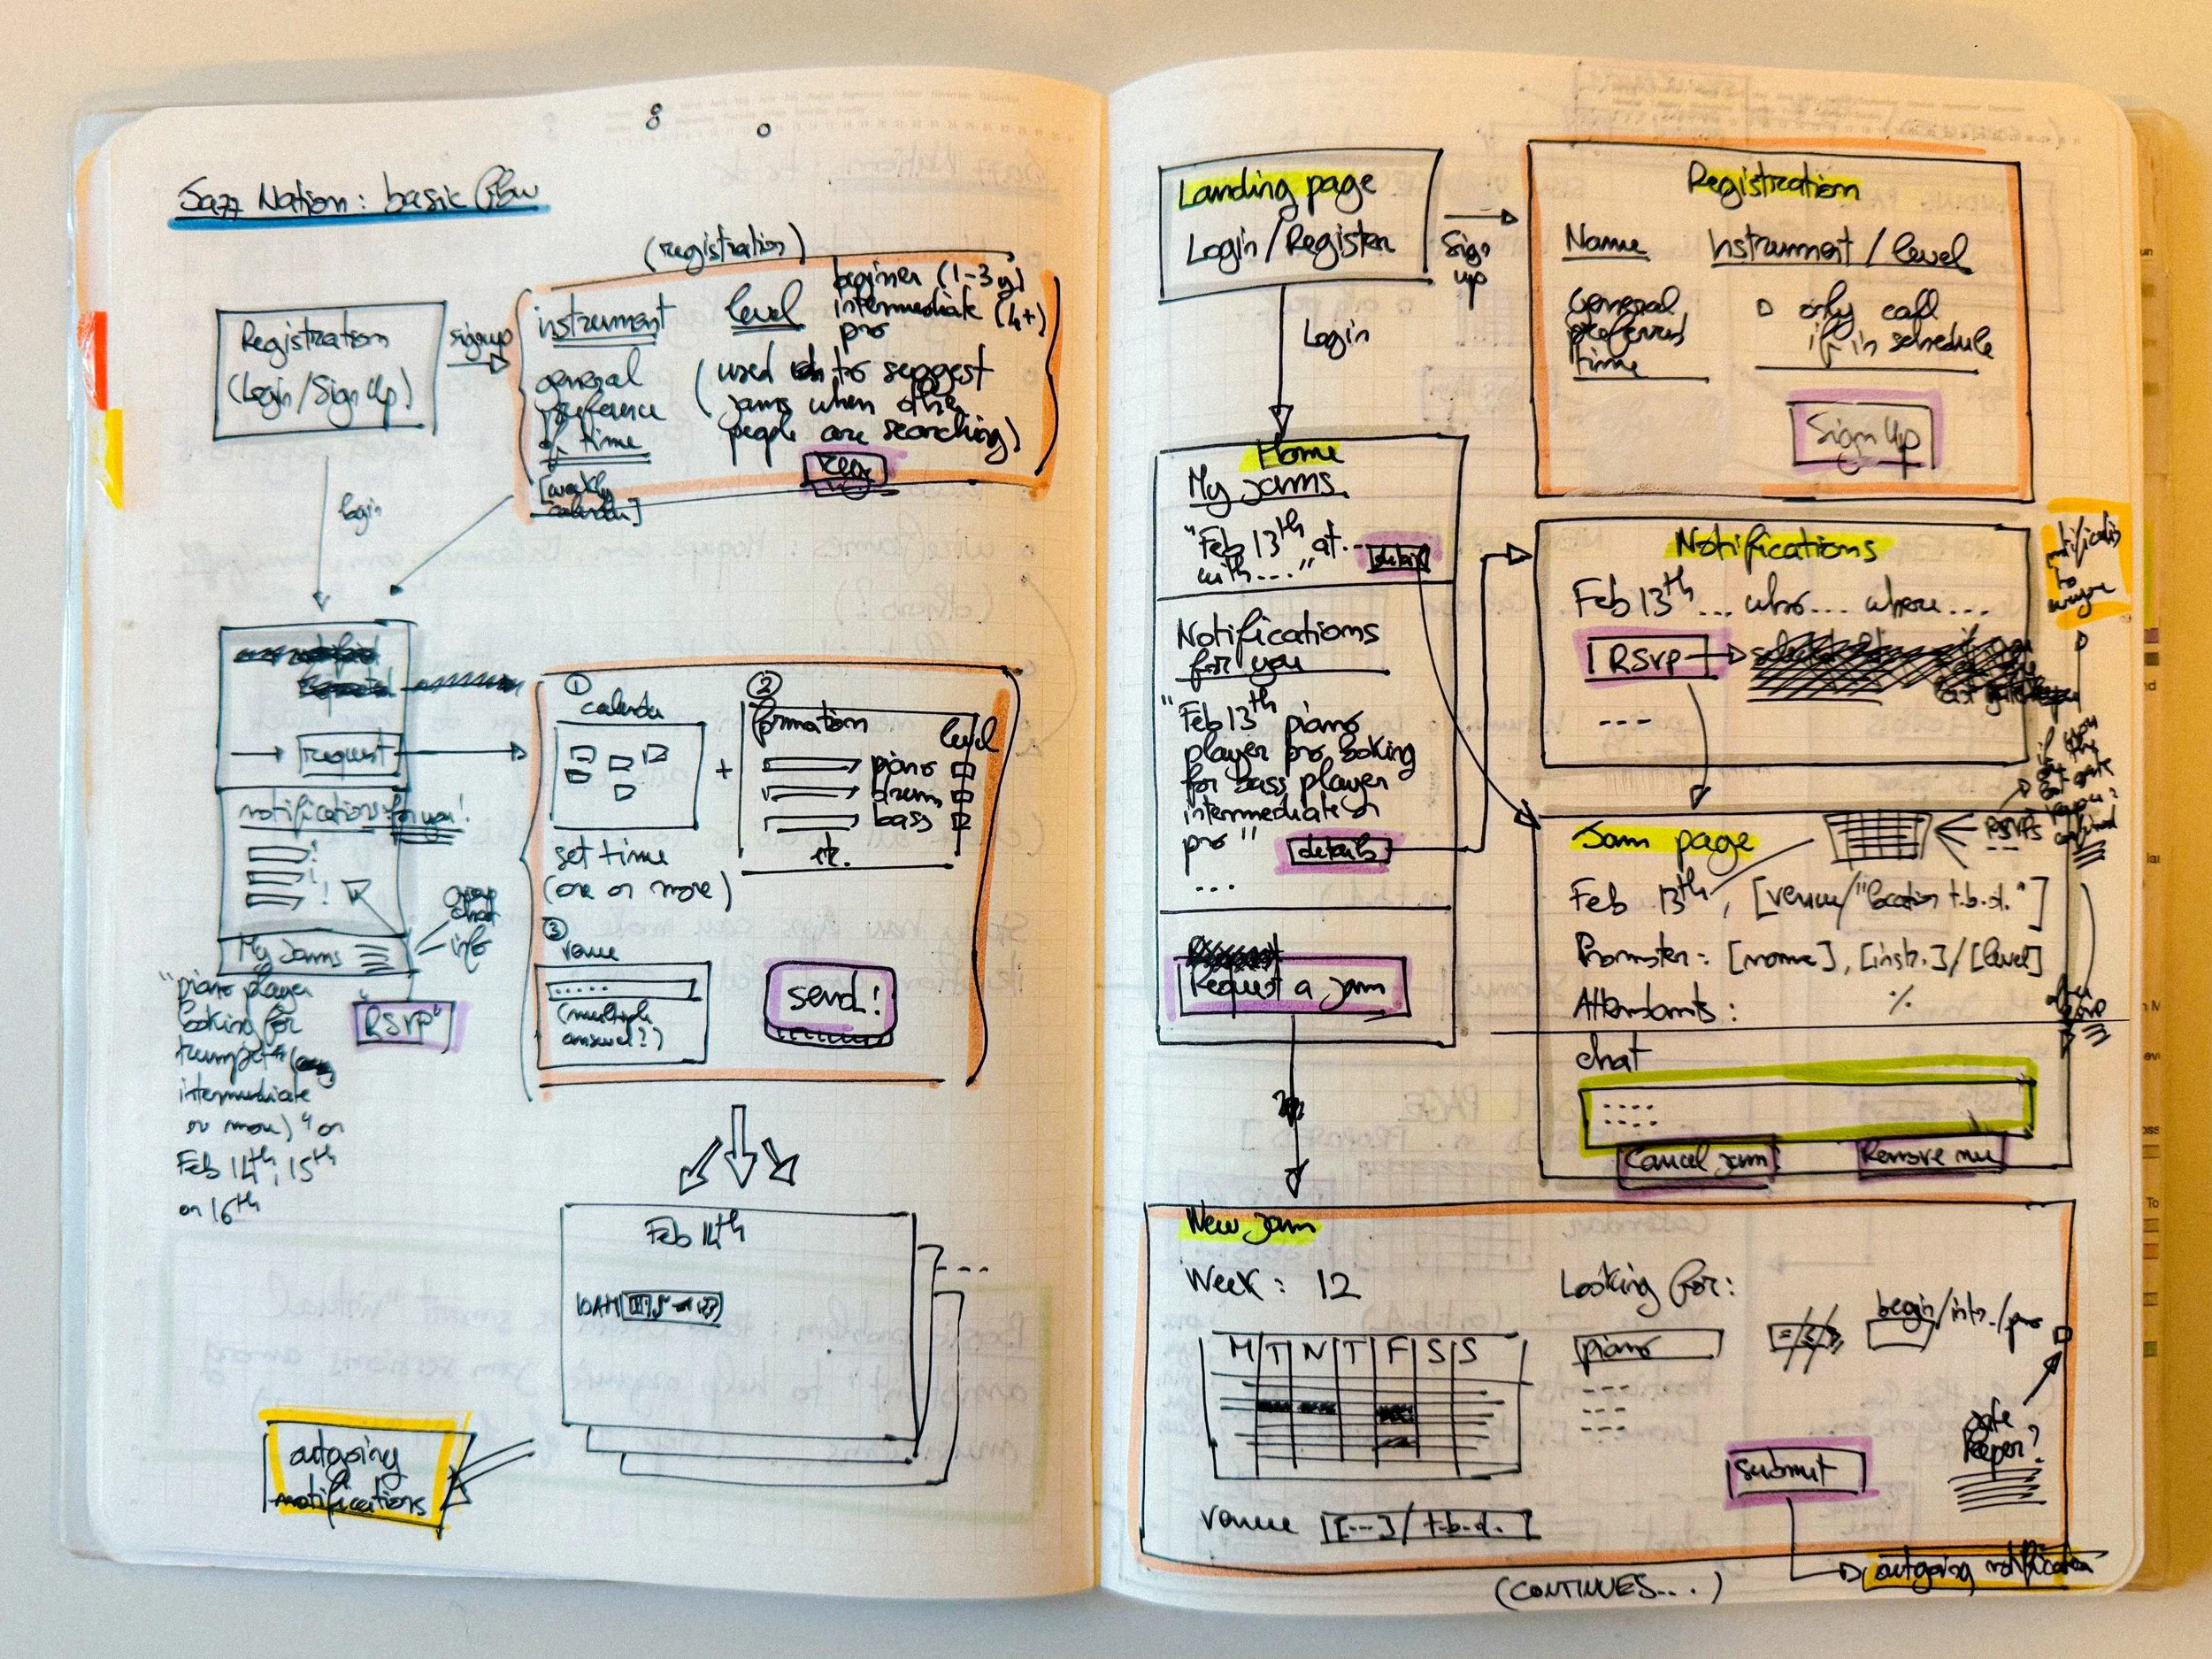 Jazz Nation: basic flow
(registration)
Registration
(Login/Sign Up)
signup
instrument
level
beginner (1-3 y)
intermediate (4+)
pro
general
preference
of time
[weekly
calendar]
(used to suggest
jams when other
people are searching)
Reg
login
request
notifications for you!
My Jams
group
chat
info
"piano player
looking for
trumpet
intermediate
or more)" on
Feb 14th, 15th
or 16th
"RSVP"
①
calendar
set time
(one or more)
+
②
formation
level
piano
drums
bass
etc.
③
venue
(multiple
answer?)
send!
Feb 14th
10AM
outgoing
notifications
Landing page
Login/Register
Sign
up
Login
Registration
Name
Instrument/level
General
preferred
time
only call
if in schedule
Sign Up
Home
My jams
"Feb 13th at...
with..."
details
Notifications
for you
"Feb 13th piano
player pro looking
for bass player
intermediate or
pro"
details
...
Request a jam
Notifications
Feb 13th... who... where...
RSVP
---
to
Jam page
RSVPs
Feb 13th, [venue/"location t.b.d."]
Promoter: [name], [instr.]/[level]
Attendants:
%
after
RSVP
chat
....
Cancel jam
Remove me
New jam
Week: 12
M T W T F S S
venue [[...]/t.b.d.]
Looking for:
piano
begin/int./pro
gate
keeper?
submit
outgoing notification
(CONTINUES...)